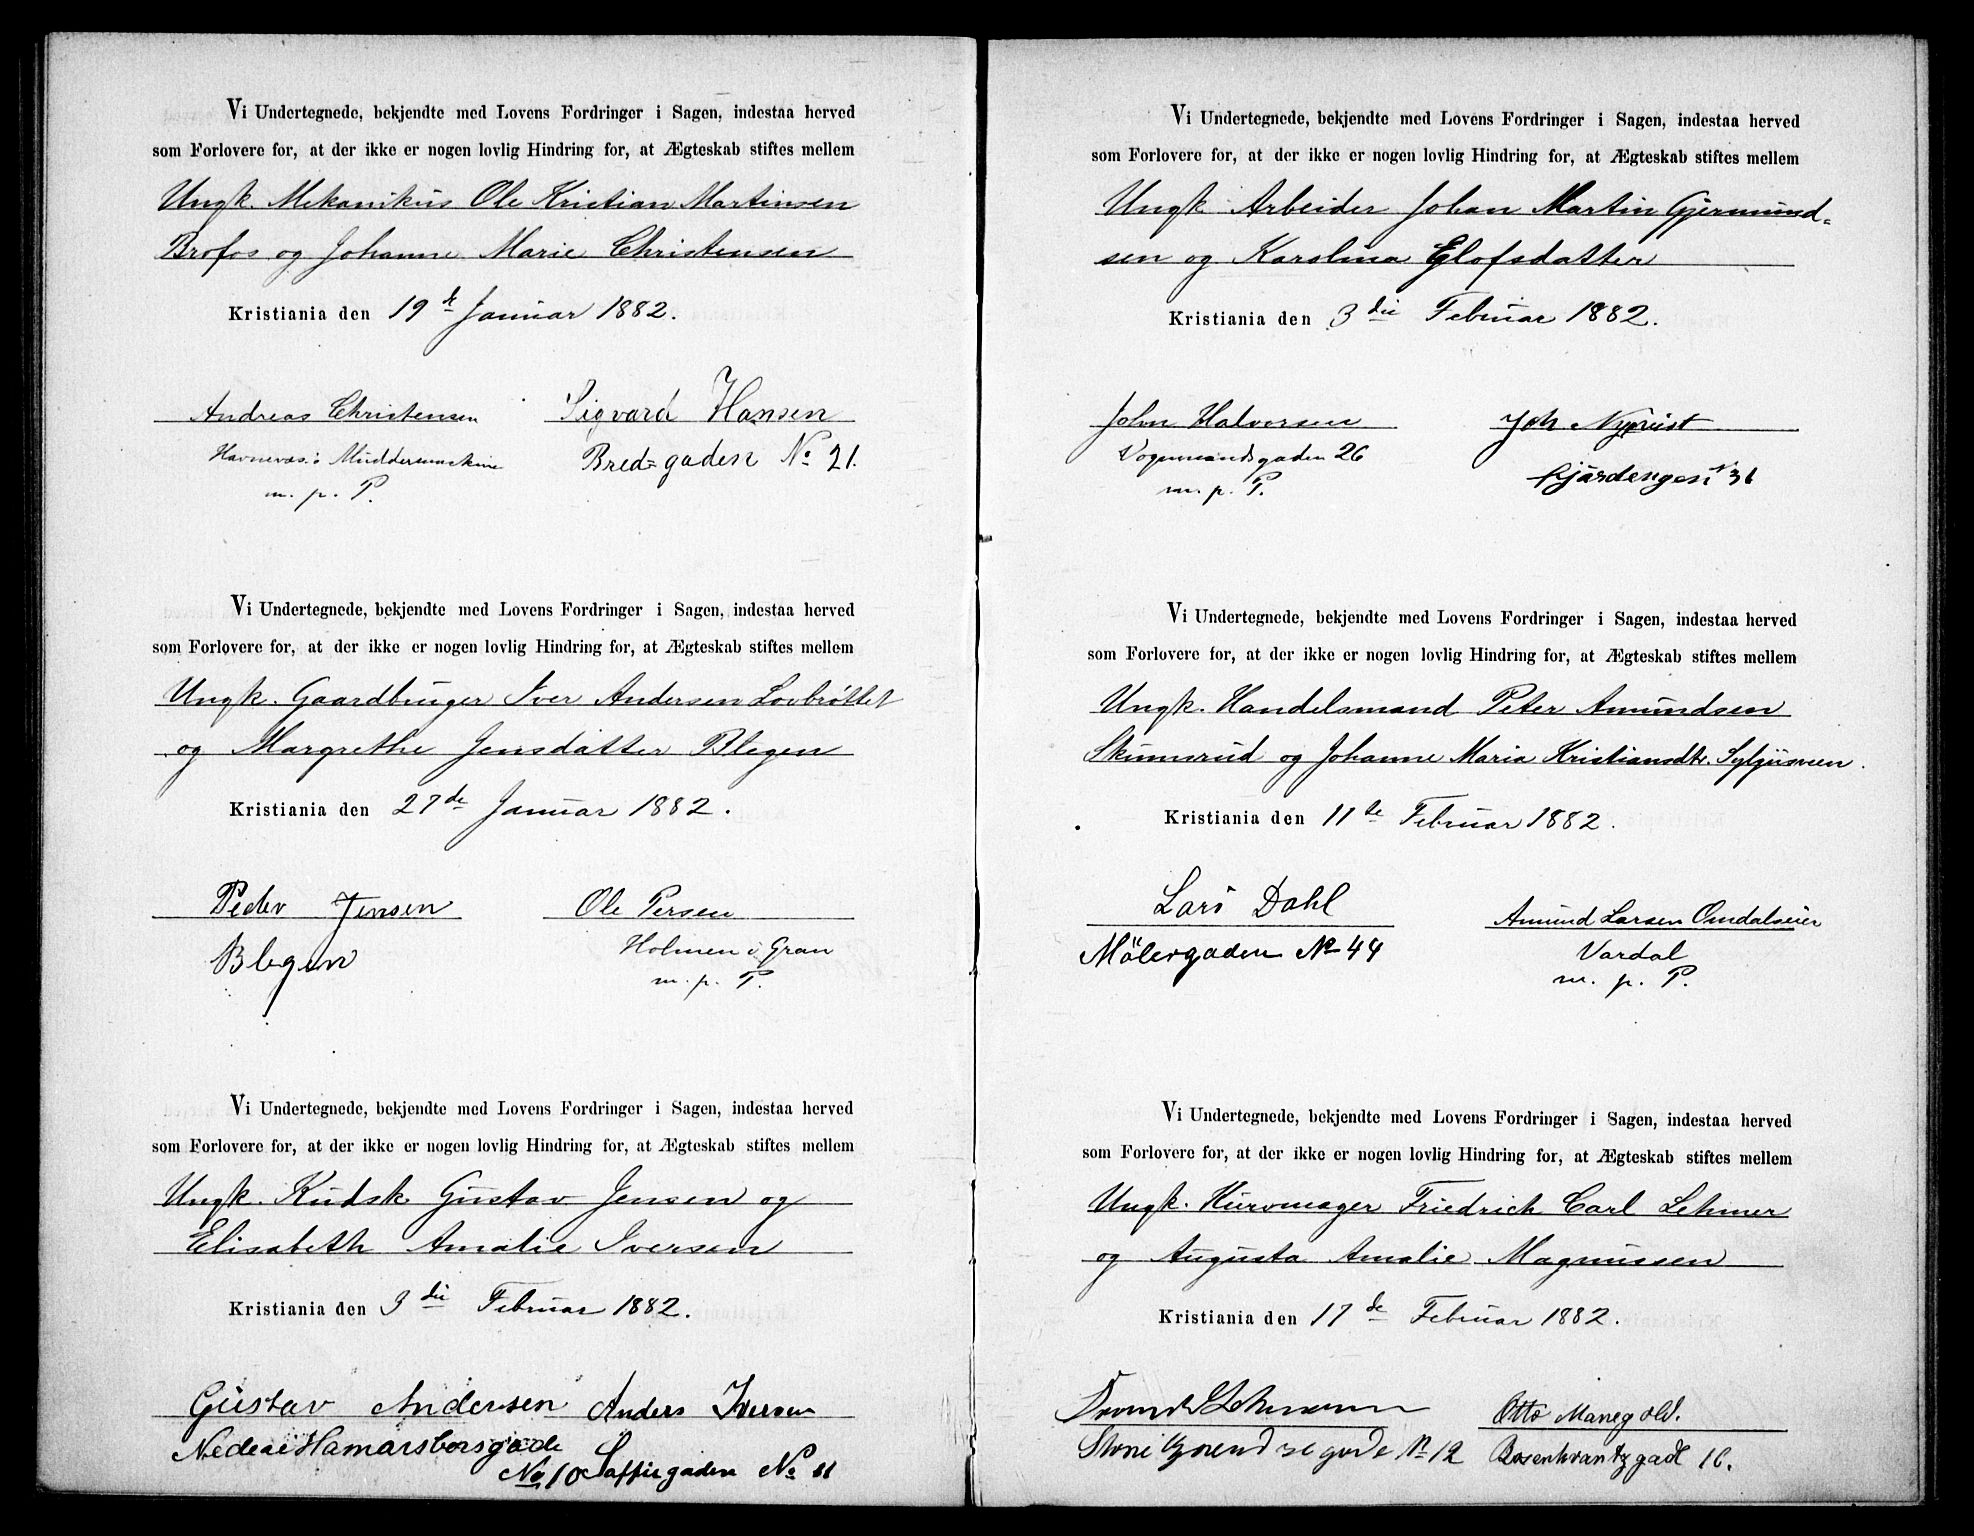 Vi Undertegnede, bekjendte med Lovens Fordringer i Sagen, indestaa herved
som Forlovere for, at der ikke er nogen lovlig Hindring for, at Ægteskab stiftes mellem
Ungk. Mekanikus Ole Kristian Martinsen
Brofos og Johanne Marie Christensen
Kristiania den 19de Januar 1882.
Andreas Christensen
Havnevæs. Muddermaskine
m. p. P.
Sigvard Hansen
Bred=gaden No 21.
Vi Undertegnede, bekjendte med Lovens Fordringer i Sagen, indestaa herved
som Forlovere for, at der ikke er nogen lovlig Hindring for, at Ægteskab stiftes mellem
Ungk. Gaardbruger Iver Andersen Lovbrøttet
og Margrethe Jensdatter Blegen
Kristiania den 27de Januar 1882.
Peder Jensen
Blegen
Ole Persen
Holmen i Gran
m. p. P.
Vi Undertegnede, bekjendte med Lovens Fordringer i Sagen, indestaa herved
som Forlovere for, at der ikke er nogen lovlig Hindring for, at Ægteskab stiftes mellem
Ungk. Kudsk Gustav Jensen og
Elisabeth Amalie Iversen
Kristiania den 3die Februar 1882.
Gustav Andersen
No 10
Anders Iversen
Saffirgaden No 11
Vi Undertegnede, bekjendte med Lovens Fordringer i Sagen, indestaa herved
som Forlovere for, at der ikke er nogen lovlig Hindring for, at Ægteskab stiftes mellem
Ungk Arbeider Johan Martin Gjermund=
sen og Karolina Elofsdatter
Kristiania den 3die Februar 1882.
John Halvorsen
Vognmandsgaden 26
m. p. P.
Joh Nyqvist
No 31
Vi Undertegnede, bekjendte med Lovens Fordringer i Sagen, indestaa herved
som Forlovere for, at der ikke er nogen lovlig Hindring for, at Ægteskab stiftes mellem
Ungk. Handelsmand Peter Amundsen
Skumsrud og Johanne Maria Kristiansdtr. Syljusveen.
Kristiania den 11te Februar 1882.
Lars Dahl
Mölergaden No 44
Amund Larsen Omdalseier
Vardal
m. p. P.
Vi Undertegnede, bekjendte med Lovens Fordringer i Sagen, indestaa herved
som Forlovere for, at der ikke er nogen lovlig Hindring for, at Ægteskab stiftes mellem
Ungk. Kurvmager Friedrich Carl Lehmer
og Augusta Amalie Magnussen
Kristiania den 17de Februar 1882.
No 12
Otto Manegold.
Rosenkrantzgade 16.